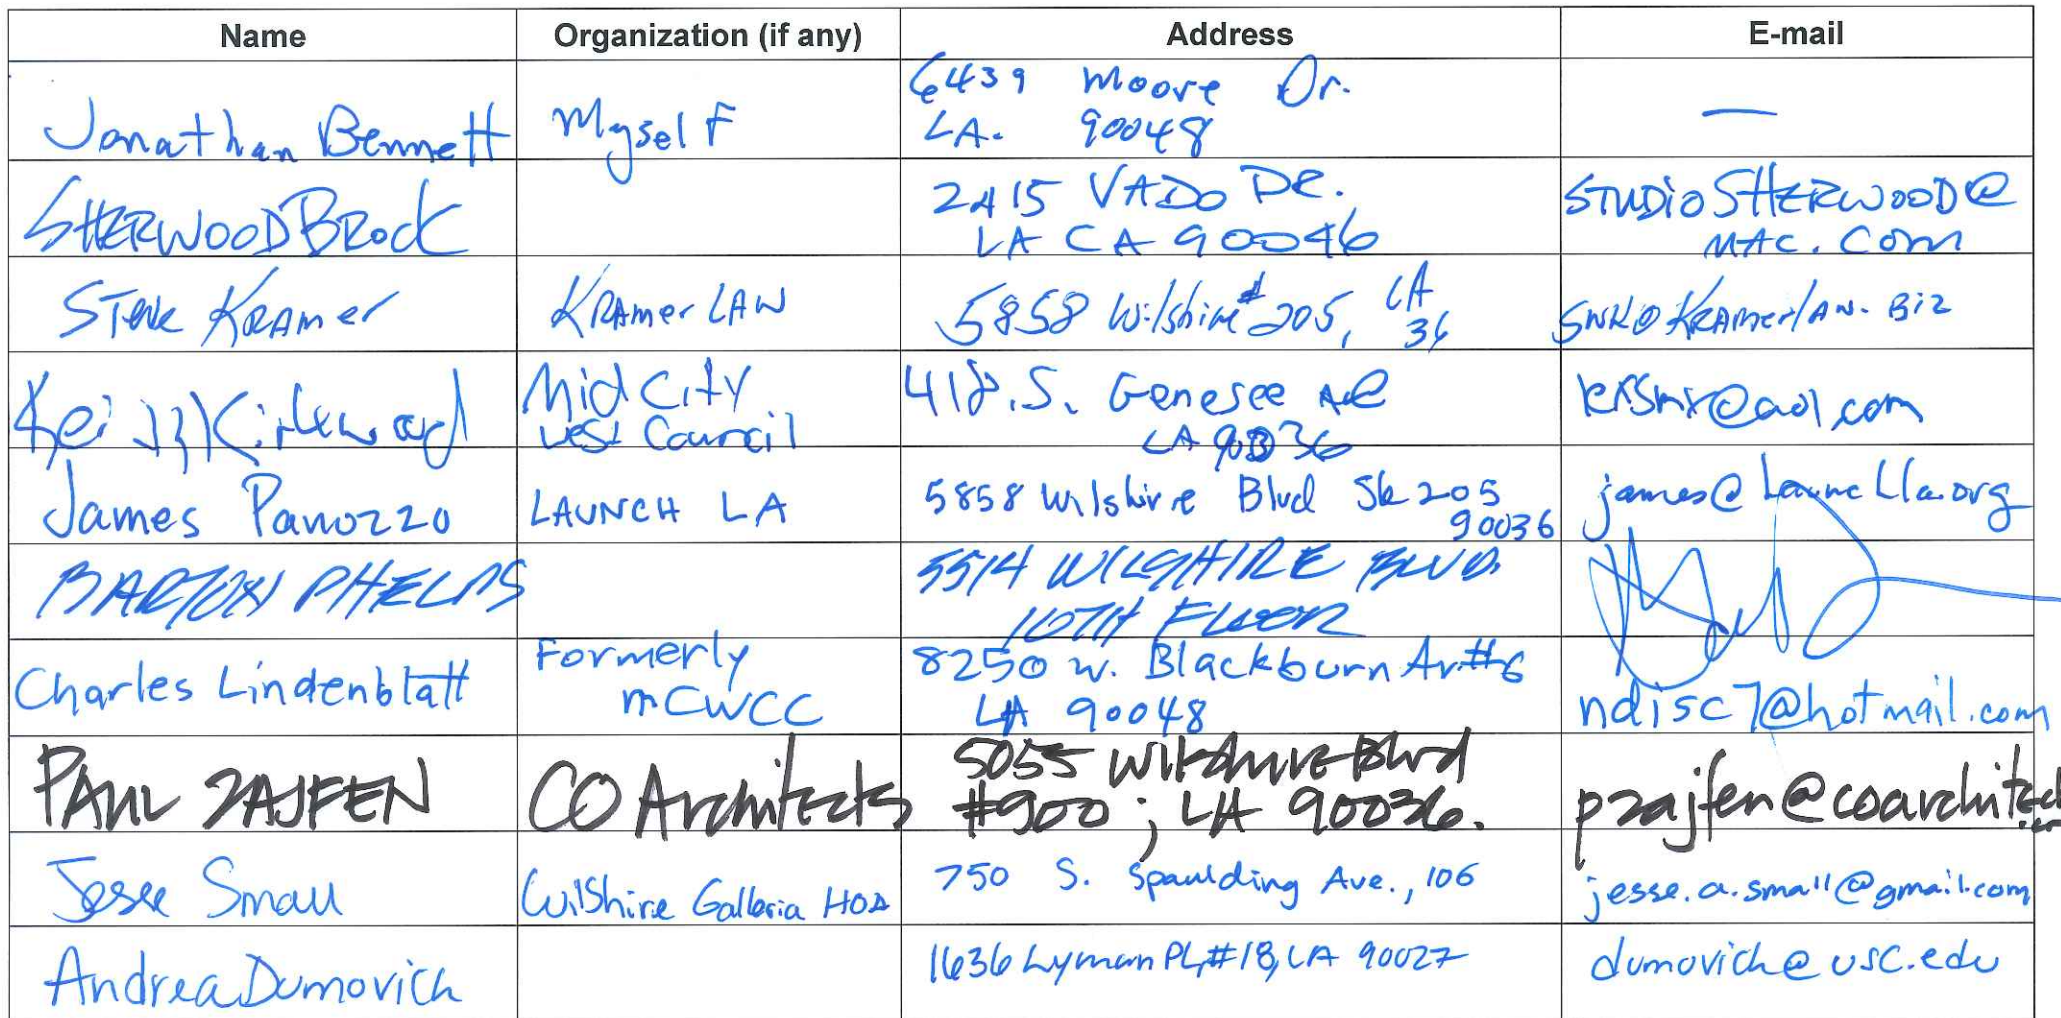 Name Organization (if any) Address E-mail
Jonathan Bennett Myself 6439 Moore Dr.
LA. 90048 —
SHERWOOD BROCK 2415 VADO DR.
LA CA 90046 STUDIOSHERWOOD@
MAC.COM
STEVE KRAMER KRAMER LAW 5858 Wilshire #205, LA
36 SNK@KRAMERLAW.BIZ
Keith Kirkwood Mid City
West Council 418 S. Genesee Ave
LA 90036 @aol.com
James Panozzo LAUNCH LA 5858 Wilshire Blvd Ste 205
90036 james@launchla.org
BARTON PHELPS 5514 WILSHIRE BLVD.
10TH FLOOR
Charles Lindenblatt Formerly
MCWCC 8250 W. Blackburn Av. #6
LA 90048 ndisc7@hotmail.com
PAUL ZAJFEN CO Architects 5055 Wilshire Blvd
#900; LA 90036. pzajfen@coarchitects.com
Jesse Small Wilshire Galleria HOA 750 S. Spaulding Ave., 106 jesse.a.small@gmail.com
Andrea Dumovich 1636 Lyman Pl, #18, LA 90027 dumovich@usc.edu